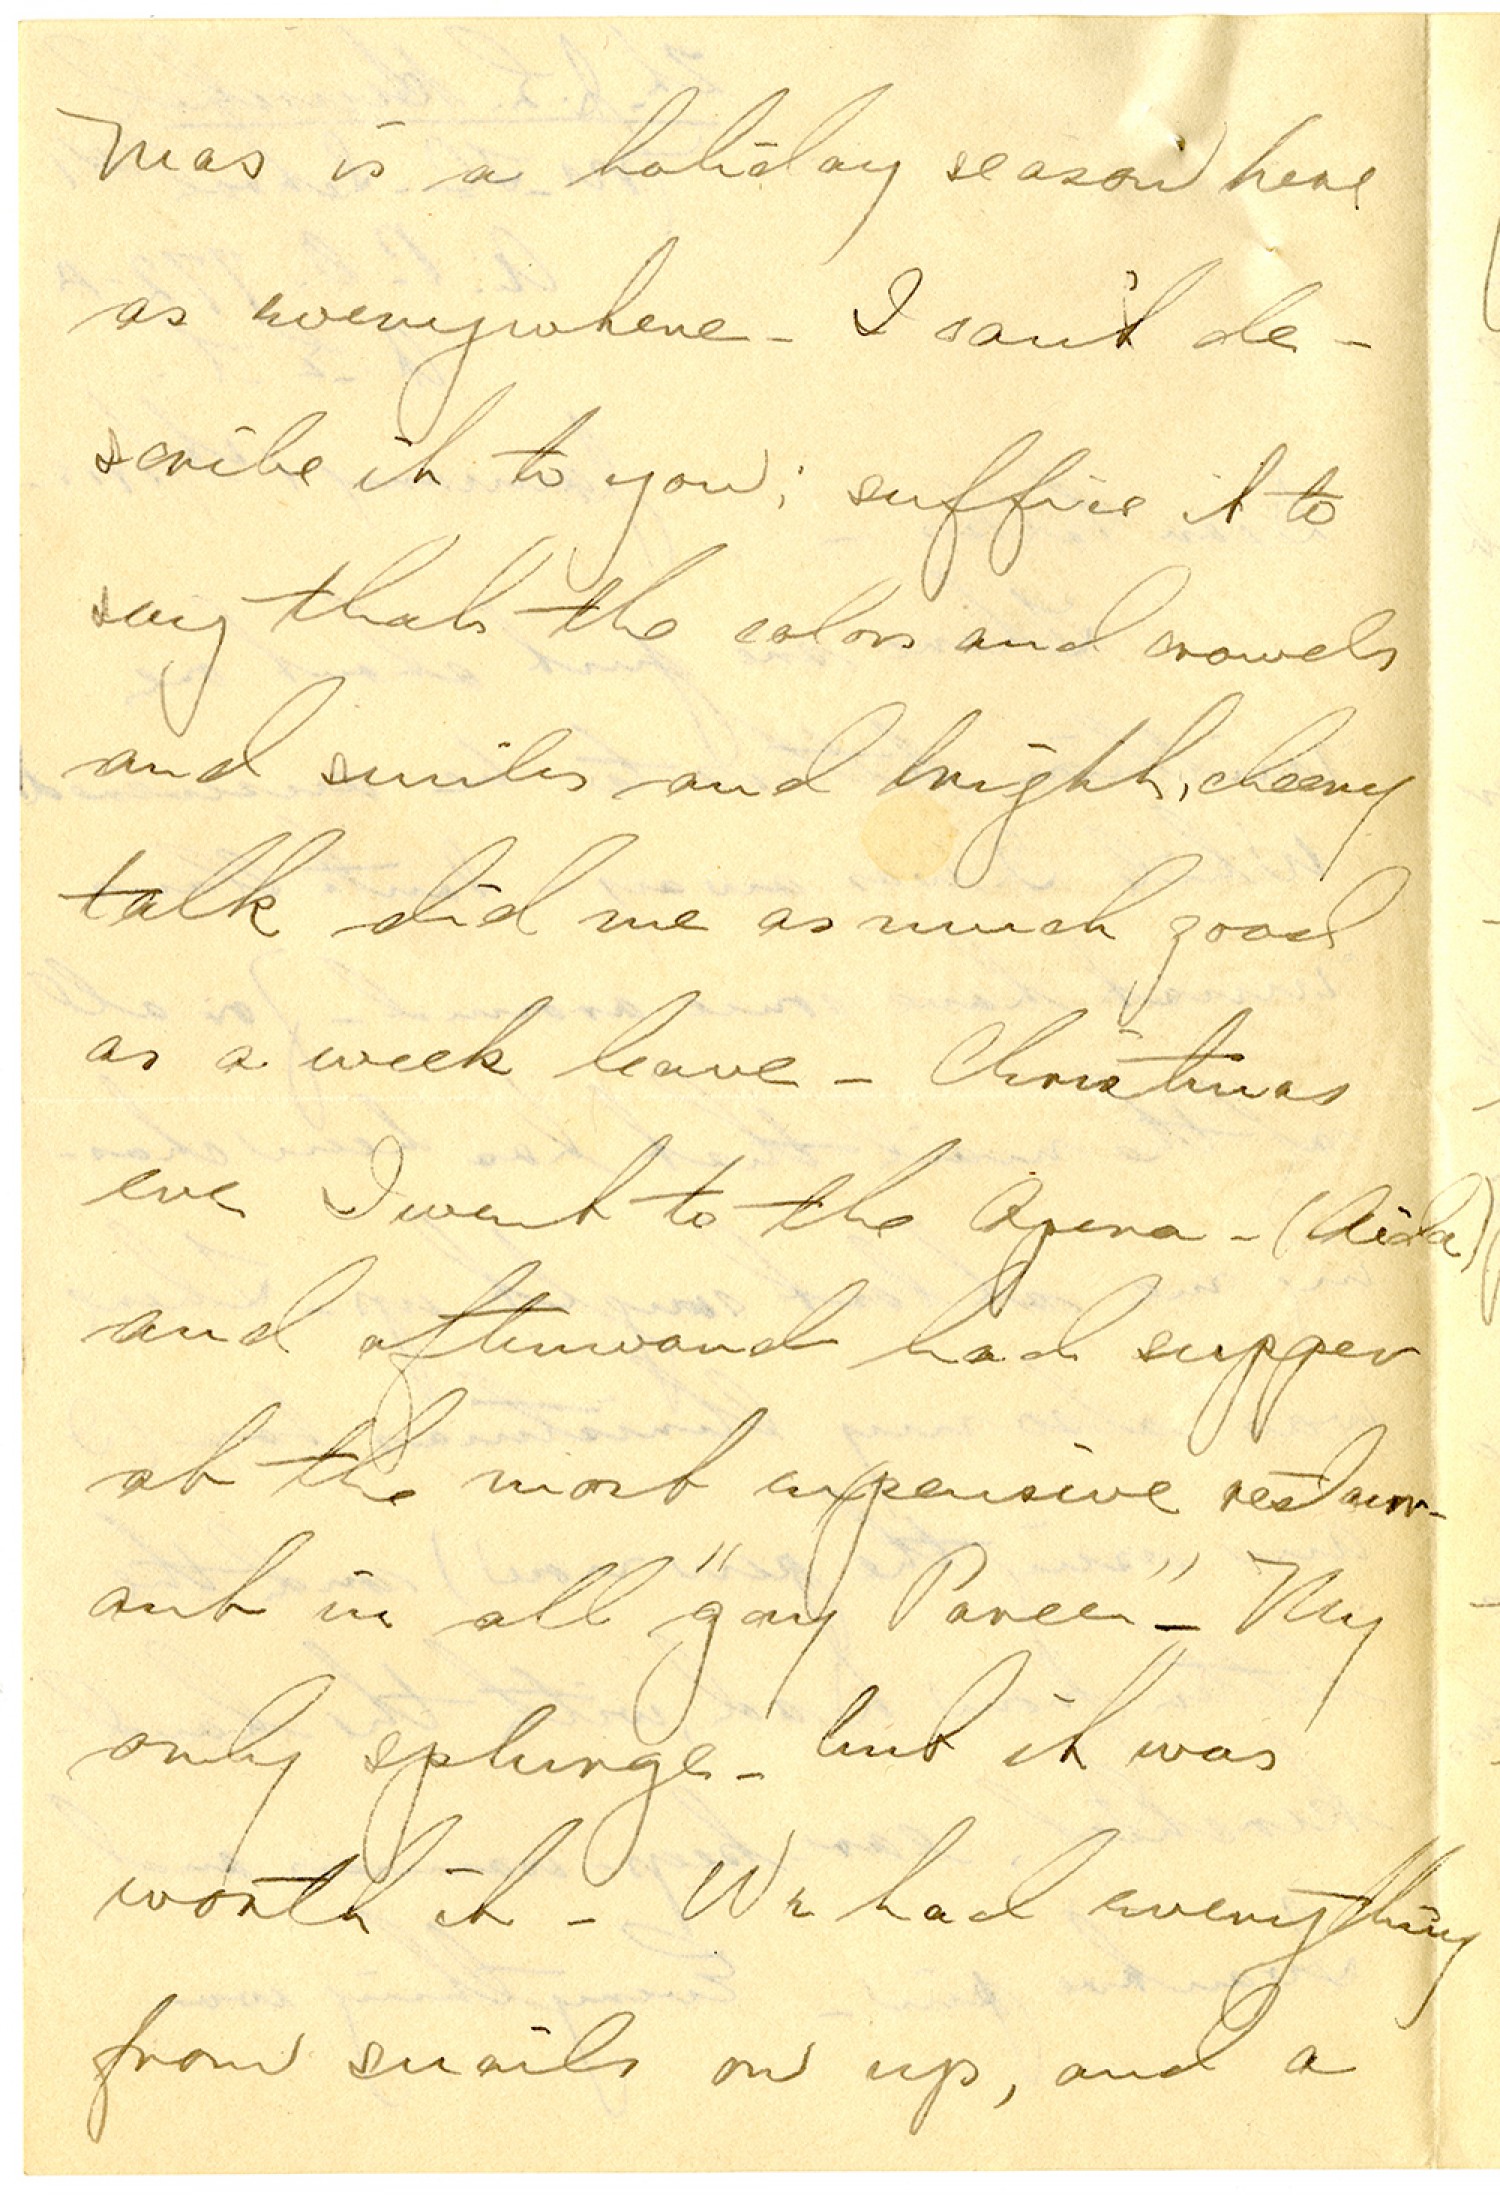 mas is a holiday season here
as everywhere - I can't de-
scribe it to you; suffice it to
say that the colors and crowds
and smiles and bright, cheery
talk did me as much good
as a week leave - Christmas
eve I went to the Opera - (Aida)
and afterward had supper
at the most expensive restaur-
ant in all "gay Paree" - My
only splurge - but it was
worth it - We had everything
from snails on up, and a